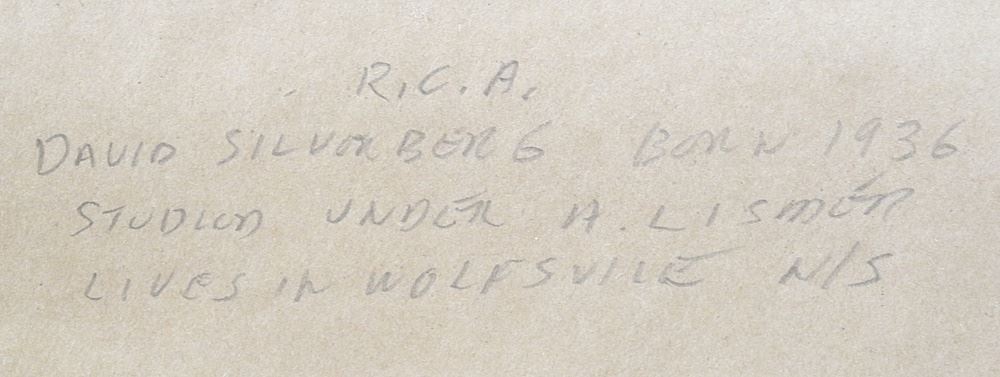 R.C.A.
DAVID SILVERBERG BORN 1936
STUDIED UNDER A. LISMER
LIVES IN WOLFSVILE N/S